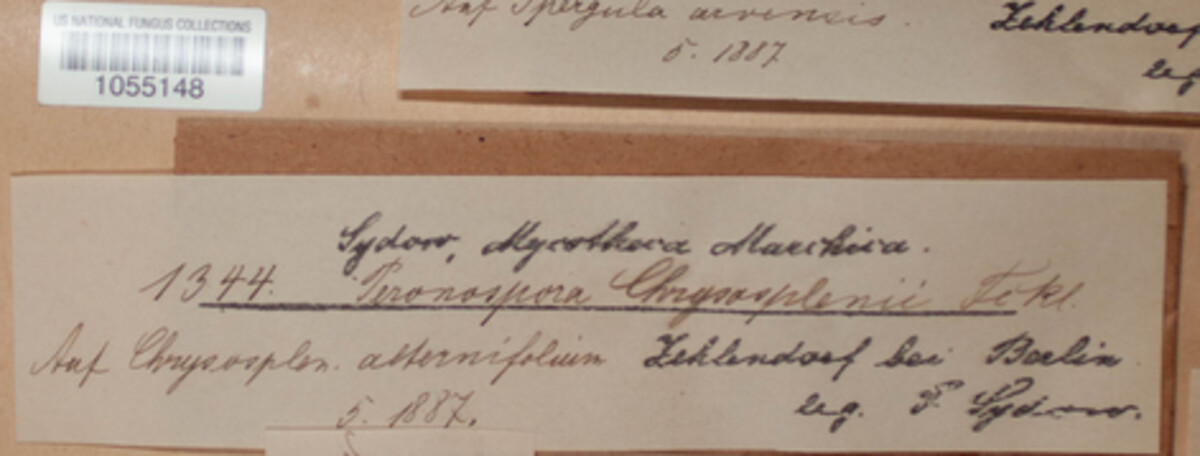 US NATIONAL FUNGUS COLLECTIONS
1055148
Auf Spergula arvensis. Zehlendorf
5. 1887 leg
Sydow, Mycotheca Marchica.
1344. Peronospora Chrysosplenii Fckl.
Auf Chrysosplen. alternifolium Zehlendorf bei Berlin
5. 1887. leg. P. Sydow.